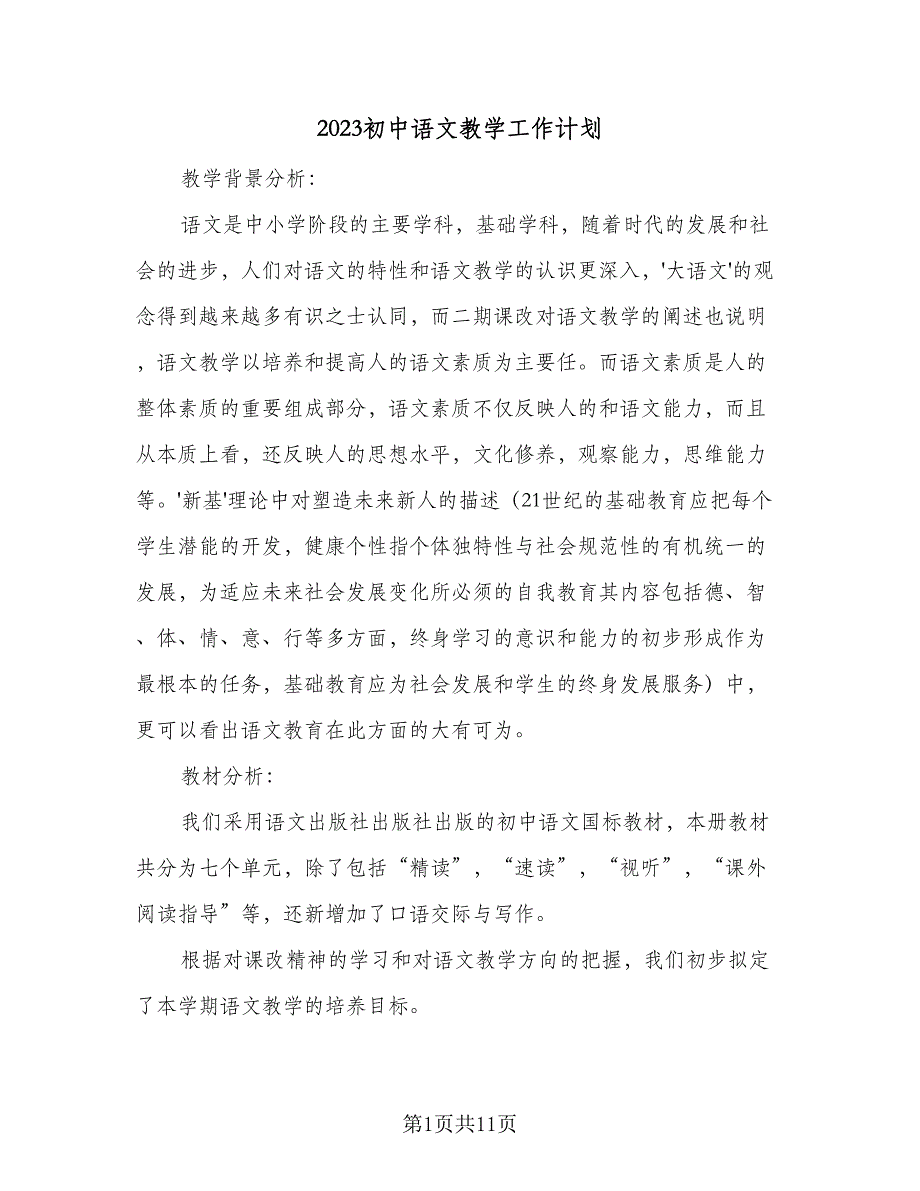 2023初中语文教学工作计划
教学背景分析：
语文是中小学阶段的主要学科，基础学科，随着时代的发展和社
会的进步，人们对语文的特性和语文教学的认识更深入，'大语文'的观
念得到越来越多有识之士认同，而二期课改对语文教学的阐述也说明
，语文教学以培养和提高人的语文素质为主要任。而语文素质是人的
整体素质的重要组成部分，语文素质不仅反映人的和语文能力，而且
从本质上看，还反映人的思想水平，文化修养，观察能力，思维能力
等。'新基'理论中对塑造未来新人的描述（21世纪的基础教育应把每个
学生潜能的开发，健康个性指个体独特性与社会规范性的有机统一的
发展，为适应未来社会发展变化所必须的自我教育其内容包括德、智
、体、情、意、行等多方面，终身学习的意识和能力的初步形成作为
最根本的任务，基础教育应为社会发展和学生的终身发展服务）中，
更可以看出语文教育在此方面的大有可为。
教材分析：
我们采用语文出版社出版社出版的初中语文国标教材，本册教材
共分为七个单元，除了包括“精读”，“速读”，“视听”，“课外
阅读指导”等，还新增加了口语交际与写作。
根据对课改精神的学习和对语文教学方向的把握，我们初步拟定
了本学期语文教学的培养目标。
第1页共11页